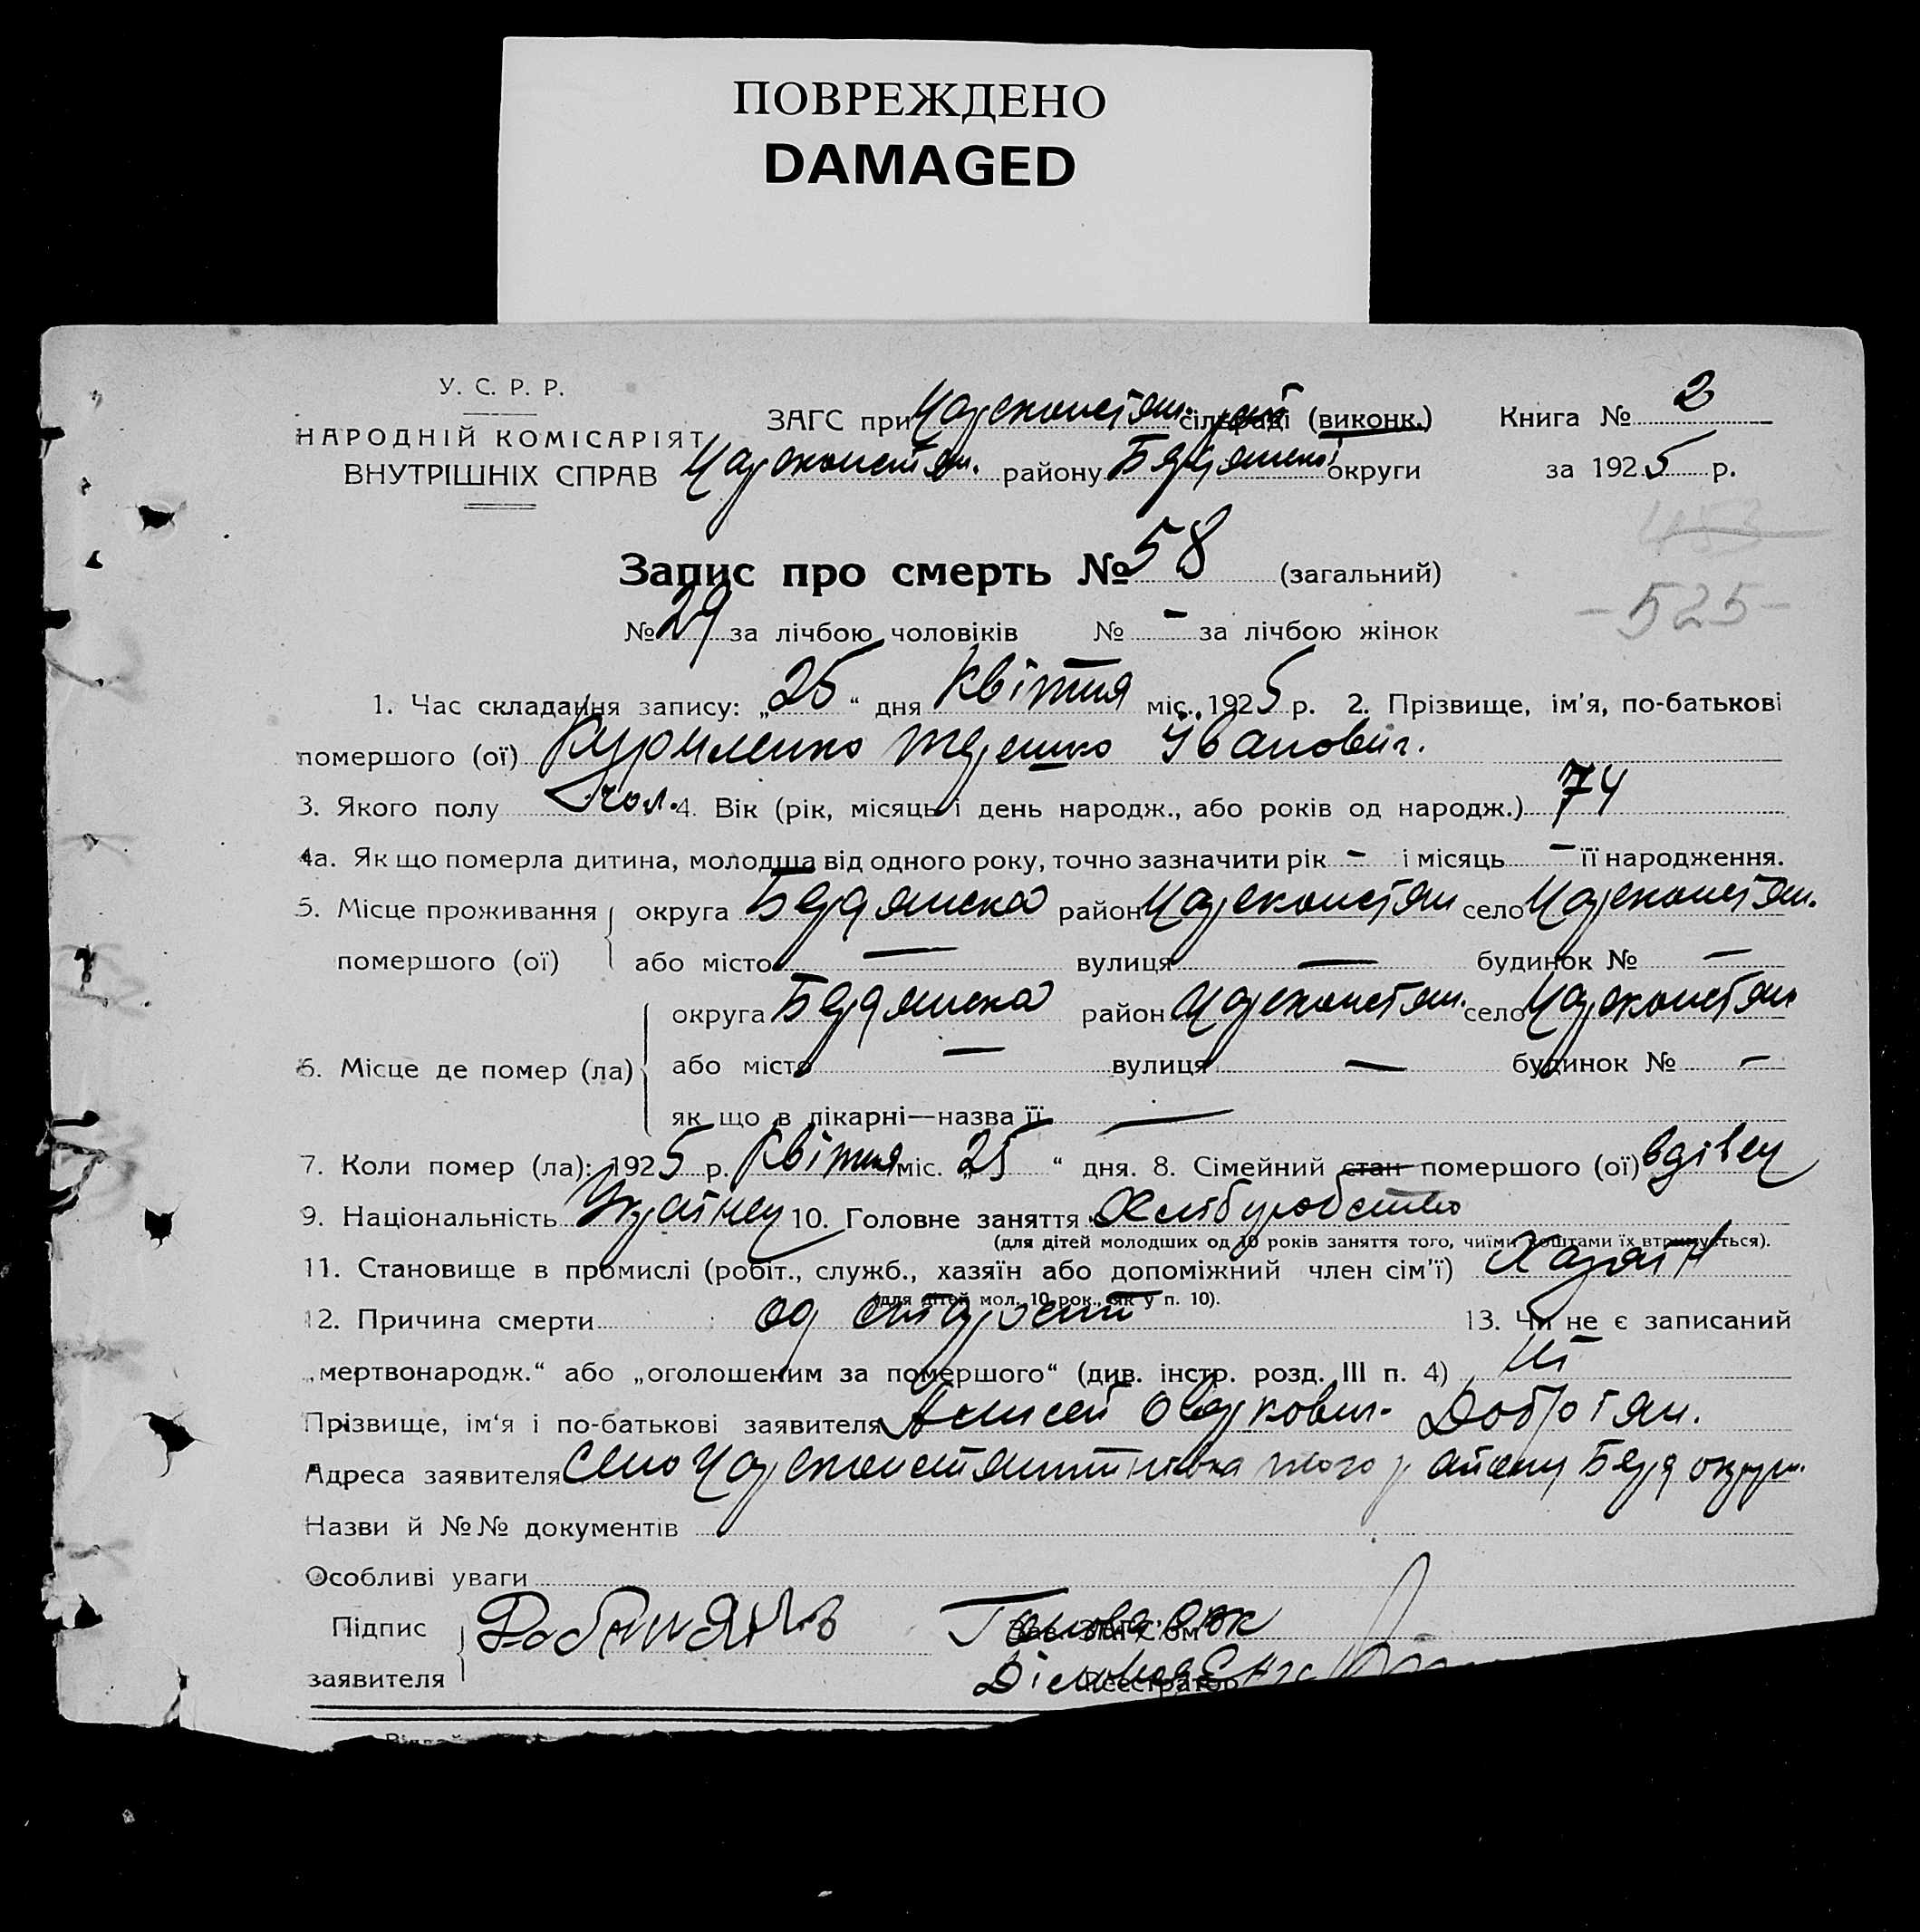 ПОВРЕЖДЕНО
DAMAGED
У. С. Р. Р.
НАРОДНІЙ КОМІСАРІЯТ
ВНУТРІШНІХ СПРАВ
ЗАГС при Цареконстян. сільраді (виконк.) Книга № 2
Цареконстян. району Бердянської округи за 1925 р.
453
Запис про смерть № 58 (загальний)
- 525 -
№ 29 за лічбою чоловіків № - за лічбою жінок
1. Час складання запису: „25“ дня Квітня міс. 1925 р. 2. Прізвище, ім'я, по-батькові
помершого (ої) Терешко Іванович.
3. Якого полу чол. 4. Вік (рік, місяць і день народж., або років од народж.) 74
4а. Як що померла дитина, молодша від одного року, точно зазначити рік - і місяць - її народження.
5. Місце проживання помершого (ої) округа Бердянска район Цареконстян село Цареконстян.
або місто — вулиця — будинок № —
6. Місце де помер (ла) округа Бердянска район Цареконстян. село Цареконстян
або місто — вулиця — будинок № —
як що в лікарні—назва її —
7. Коли помер (ла): 1925 р. Квітня міс. „25“ дня. 8. Сімейний стан помершого (ої) вдівец
9. Національність Українец 10. Головне заняття Хлібуробство
(для дітей молодших од 10 років заняття того, чиїми коштами їх втримується).
11. Становище в промислі (робіт., служб., хазяїн або допоміжний член сім'ї) Хазяїн
(для дітей мол. 10 рок., як у п. 10).
12. Причина смерти од старости 13. Чи не є записаний
„мертвонародж.“ або „оголошеним за помершого“ (див. інстр. розд. III п. 4) ні
Прізвище, ім'я і по-батькові заявителя Добрян.
Адреса заявителя Село Цареконстянтинівка того району Берд округи.
Назви й №№ документів
Особливі уваги
Підпис заявителя
Зав. ЗАГС'ом
Реєстратор